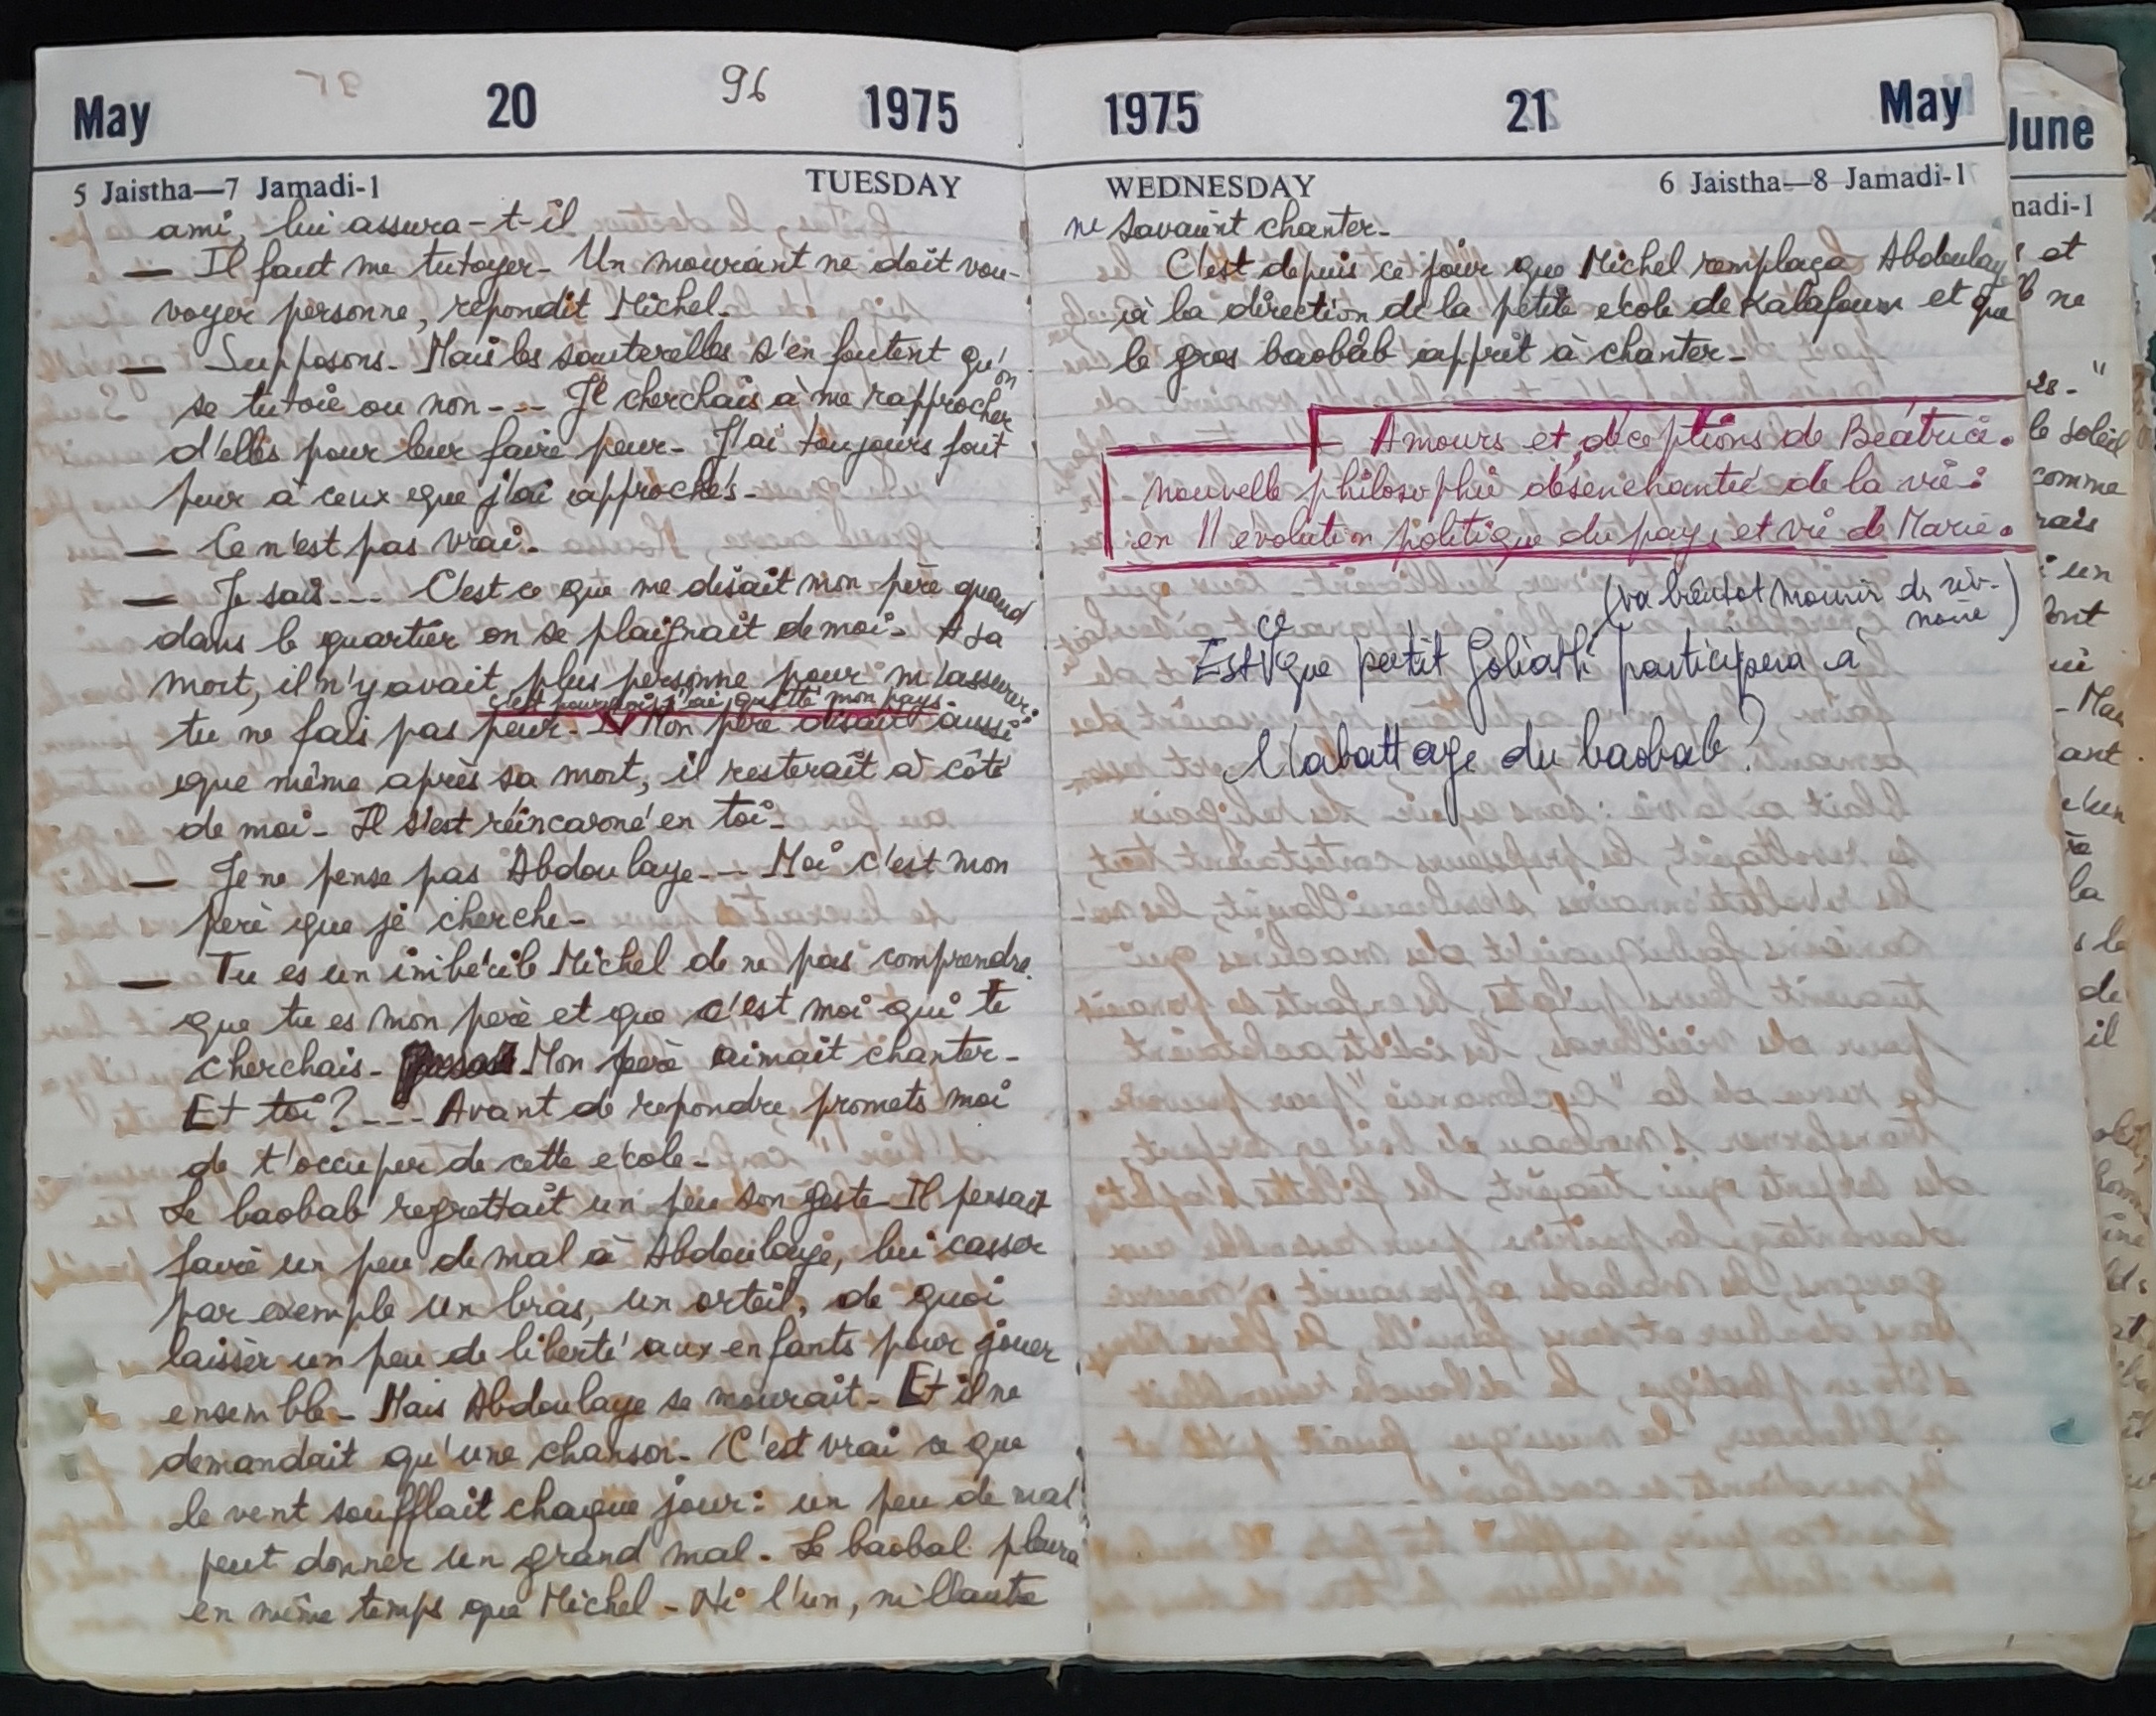 May 20 96 1975
5 Jaistha—7 Jamadi-1 TUESDAY
ami, lui assura-t-il
— Il faut me tutoyer- Un mourant ne doit vou-
voyer personne, répondit Michel-
— Supposons- Mais les sauterelles s'en foutent qu'on
se tutoie ou non--- Je cherchais à me rapprocher
d'elles pour leur faire peur- J'ai toujours fait
peur à ceux que j'ai approchés-
— Ce n'est pas vrai-
— Je sais--- C'est ce que me disait mon père quand
dans le quartier on se plaignait de moi- A sa
mort, il n'y avait plus personne pour m'assurer:
c'est pourquoi j'ai quitté mon pays-
tu ne fais pas peur- Mon père disait aussi
que même après sa mort, il resterait à côté
de moi- Il s'est réincarné en toi-
— Je ne pense pas Abdoulaye--- Moi c'est mon
père que je cherche-
— Tu es un imbécile Michel de ne pas comprendre
que tu es mon père et que c'est moi qui te
cherchais- Mon père aimait chanter-
Et toi?---- Avant de repondre, promets moi
de t'occuper de cette école-
Le baobab regrettait un peu son geste- Il pensait
faire un peu de mal à Abdoulaye, lui casser
par exemple un bras, un orteil, de quoi
laisser un peu de liberté aux enfants pour jouer
ensemble- Mais Abdoulaye se mourait- Et il ne
demandait qu'une chanson- C'est vrai ce que
le vent soufflait chaque jour: un peu de mal
peut donner un grand mal. Le baobab pleura
en même temps que Michel- Ni l'un, ni l'autre
1975 21 May
WEDNESDAY 6 Jaistha—8 Jamadi-1
ne savaient chanter-
C'est depuis ce jour que Michel remplaça Abdoulay
à la direction de la petite école de Kalafoum et que
le gros baobab apprit à chanter-
Amours et déceptions de Béatrice.
nouvelle philosophie désenchantée de la vie:
en 11 évolution politique du pays et vie de Marie.
(va bientot mourir de
ce
Est que petit Goliath participera à
l'abattage du baobab?
June
nadi-1
et
ne
le soleil
comme
rais
un
ant
la
le
de
il